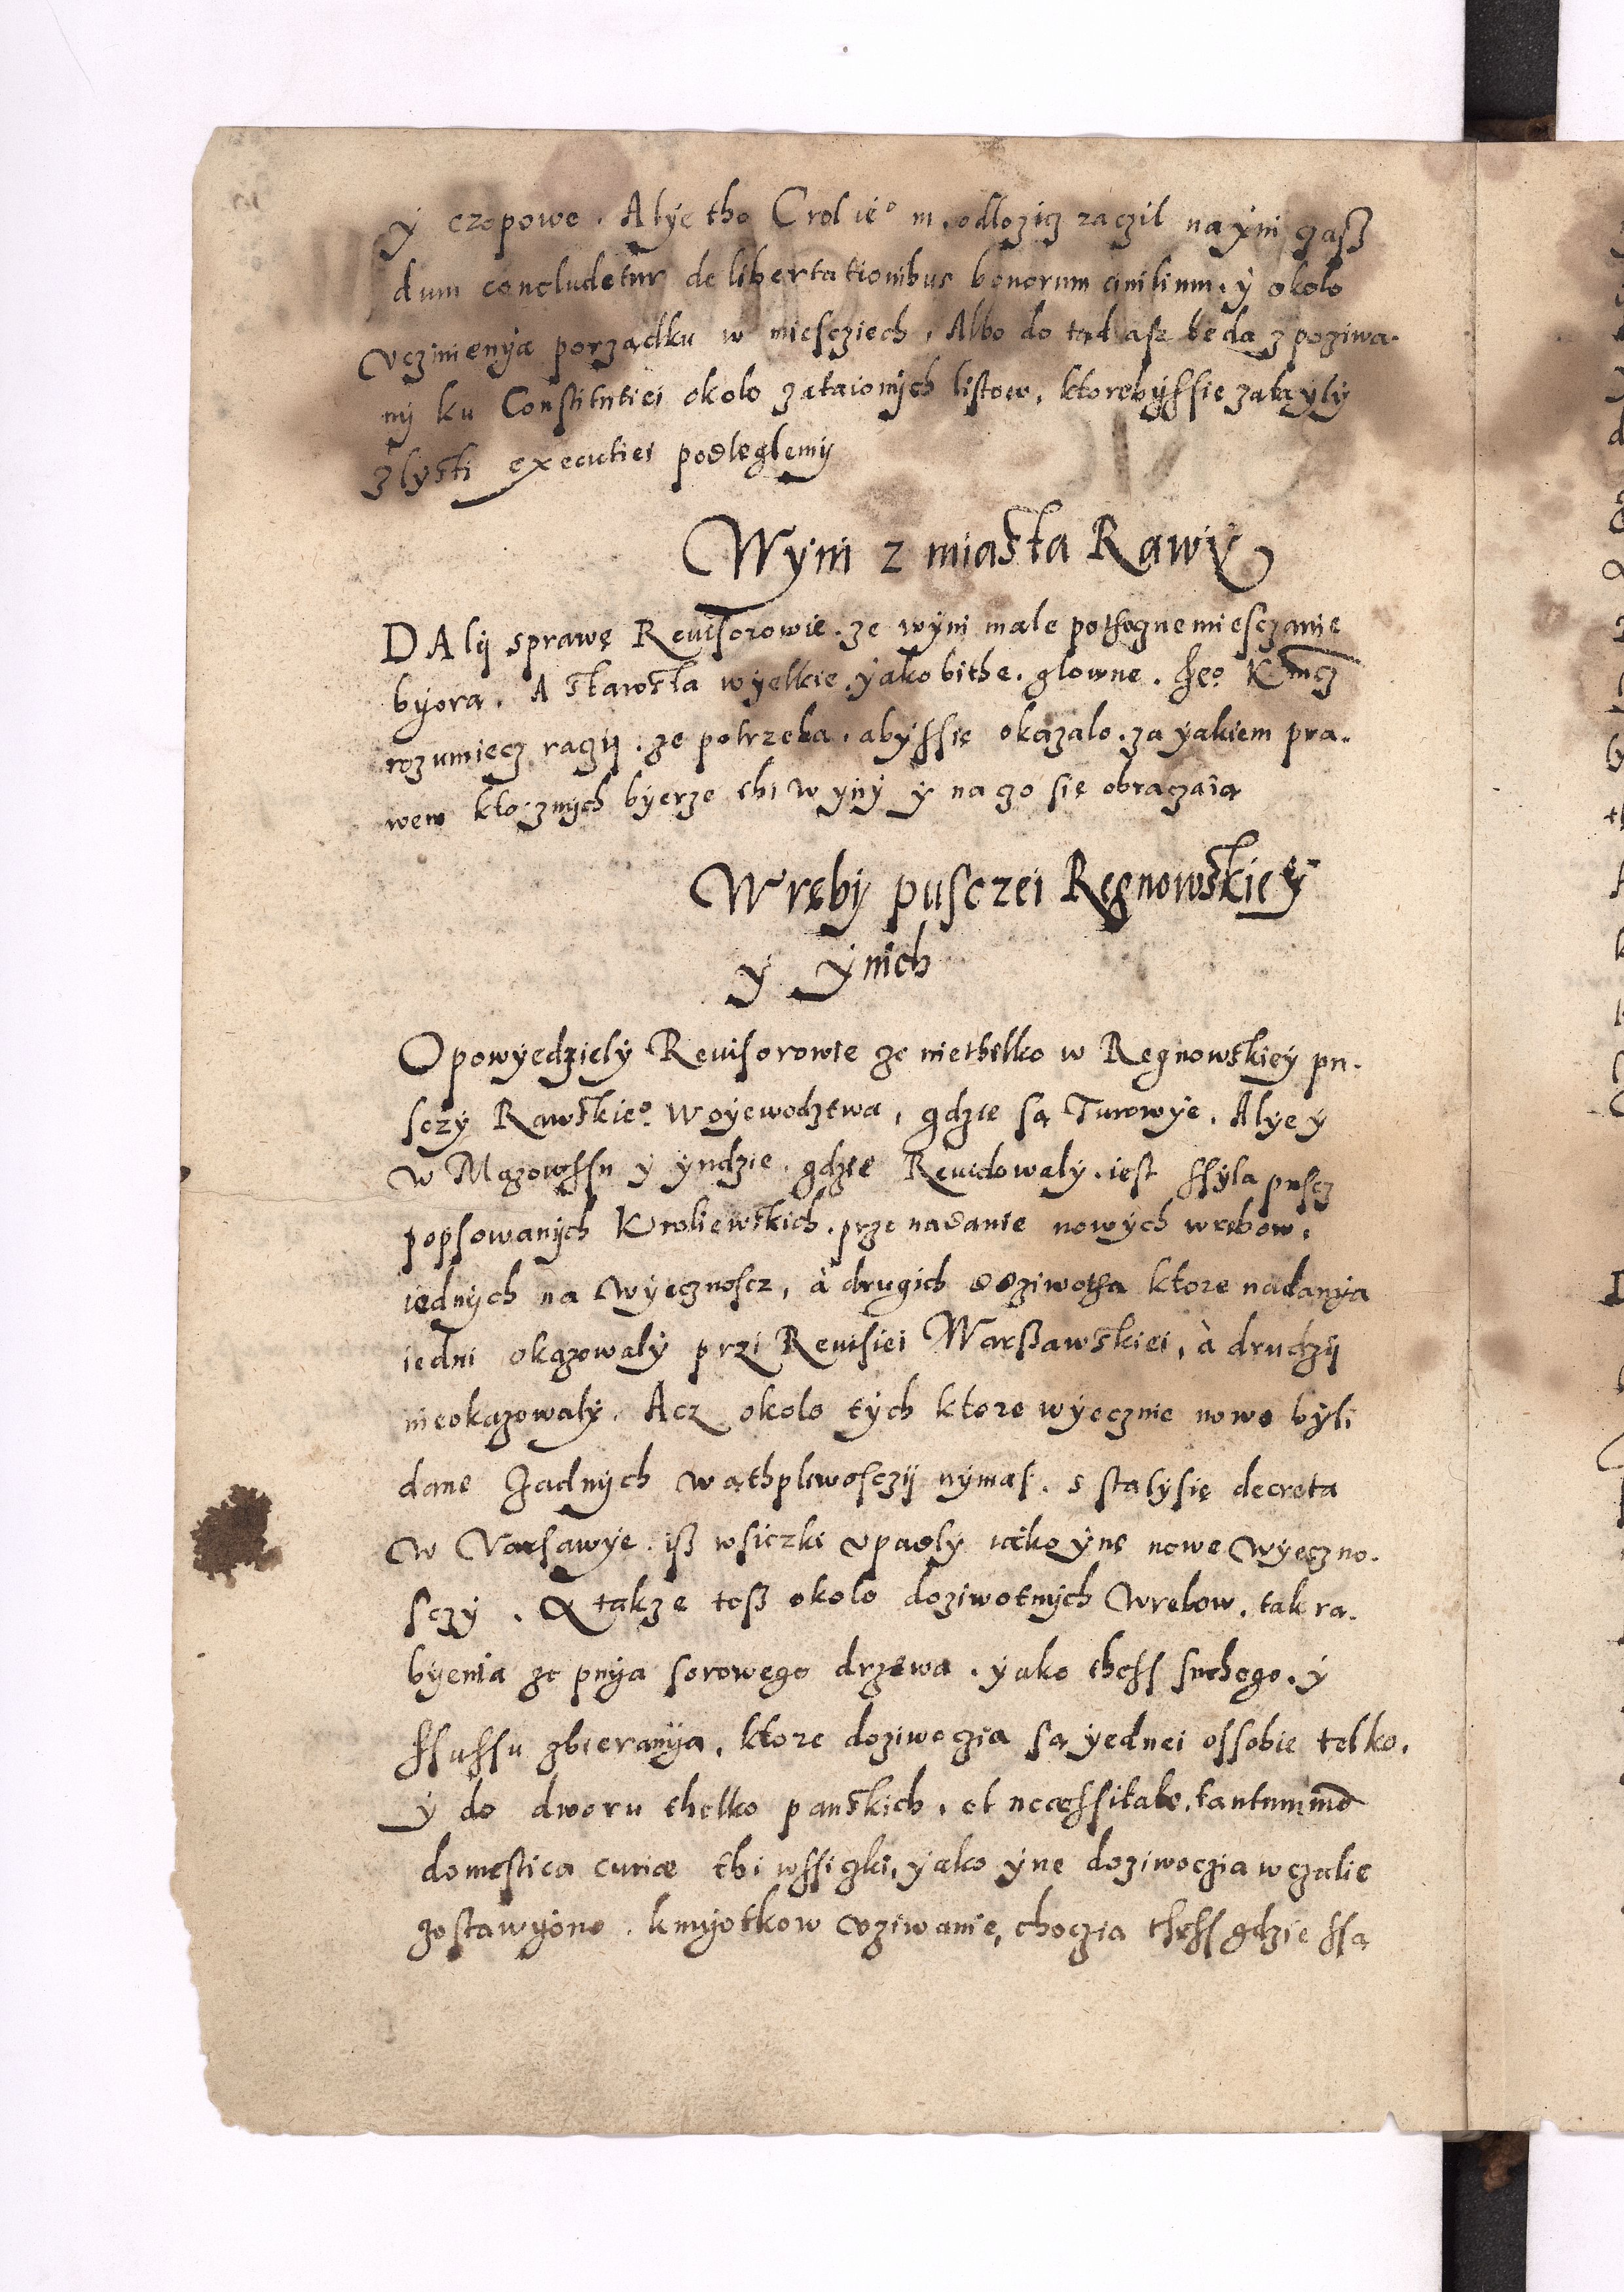 ÿ czopowe. Alÿe tho Crol ie° m. odlozicz raczil na ÿni czasz
dum concludetur de libertationibus bonorum ciuilium. ÿ okolo
vczinienÿa porządku w miescziech, Albo do tąd asz będą z poziwa.
nÿ ku Constitutiei okolo zataionÿch listow, ktorebÿssie zataÿlÿ
z lÿsti executiei podleglemÿ
Wÿni z miasta Rawÿ
DAlÿ sprawę Reuisorowie. ze wÿni male pothoczne miesczanie
bÿora. A starosta wÿelkie. ÿako bithe. glowne. Je° K mcz
rozumiecz raczÿ. ze potrzeba. abÿssię okazalo. za ÿakiem pra.
wem kto inÿch bÿerze thi wÿnÿ ÿ na czo się obraczaią
Wrębÿ pusczei Regnowskieÿ
ÿ ÿnich
Opowÿedzielÿ Reuisorowie ze nie thilko w Regnowskieÿ pu.
sczÿ Rawskie° Woÿewodztwa, gdzie są Turowÿe. Alÿe ÿ
w Mazowssu ÿ ÿndzie. gdzie Reuidowalÿ. iest ssÿla puscz
popsowanÿch Kroliewskich. prze nadanie nowÿch wrebow.
iednÿch na wÿecznoscz, à drugich doziwotha ktore nadanÿa
iedni okazowalÿ przi Reuisiei Warszawskiei, à drudzÿ
nieokazowalÿ. Acz okolo tÿch ktore wÿecznie nowo bÿli
dane żadnÿch wąthpliwosczÿ nÿmasz. stalÿ się decreta
w Varsawÿe. isz wsiczki vpadlÿ iako ÿne nowe wÿeczno.
sczÿ. A takze tesz okolo doziwotnÿch wrebow. tak ra.
bÿenia ze pnÿa sorowego drzewa. ÿako thess suchego. ÿ
ssussu zbieranÿa. ktore doziwoczia są ÿednei ossobie telko.
ÿ do dworu thelko panskich. et necessitate. tantummo
domestica curiæ thi wssiczki, ÿako ÿne doziwoczia wczalie
zostawÿono. kmÿotkow vziwanie, choczia thess gdzie ssą